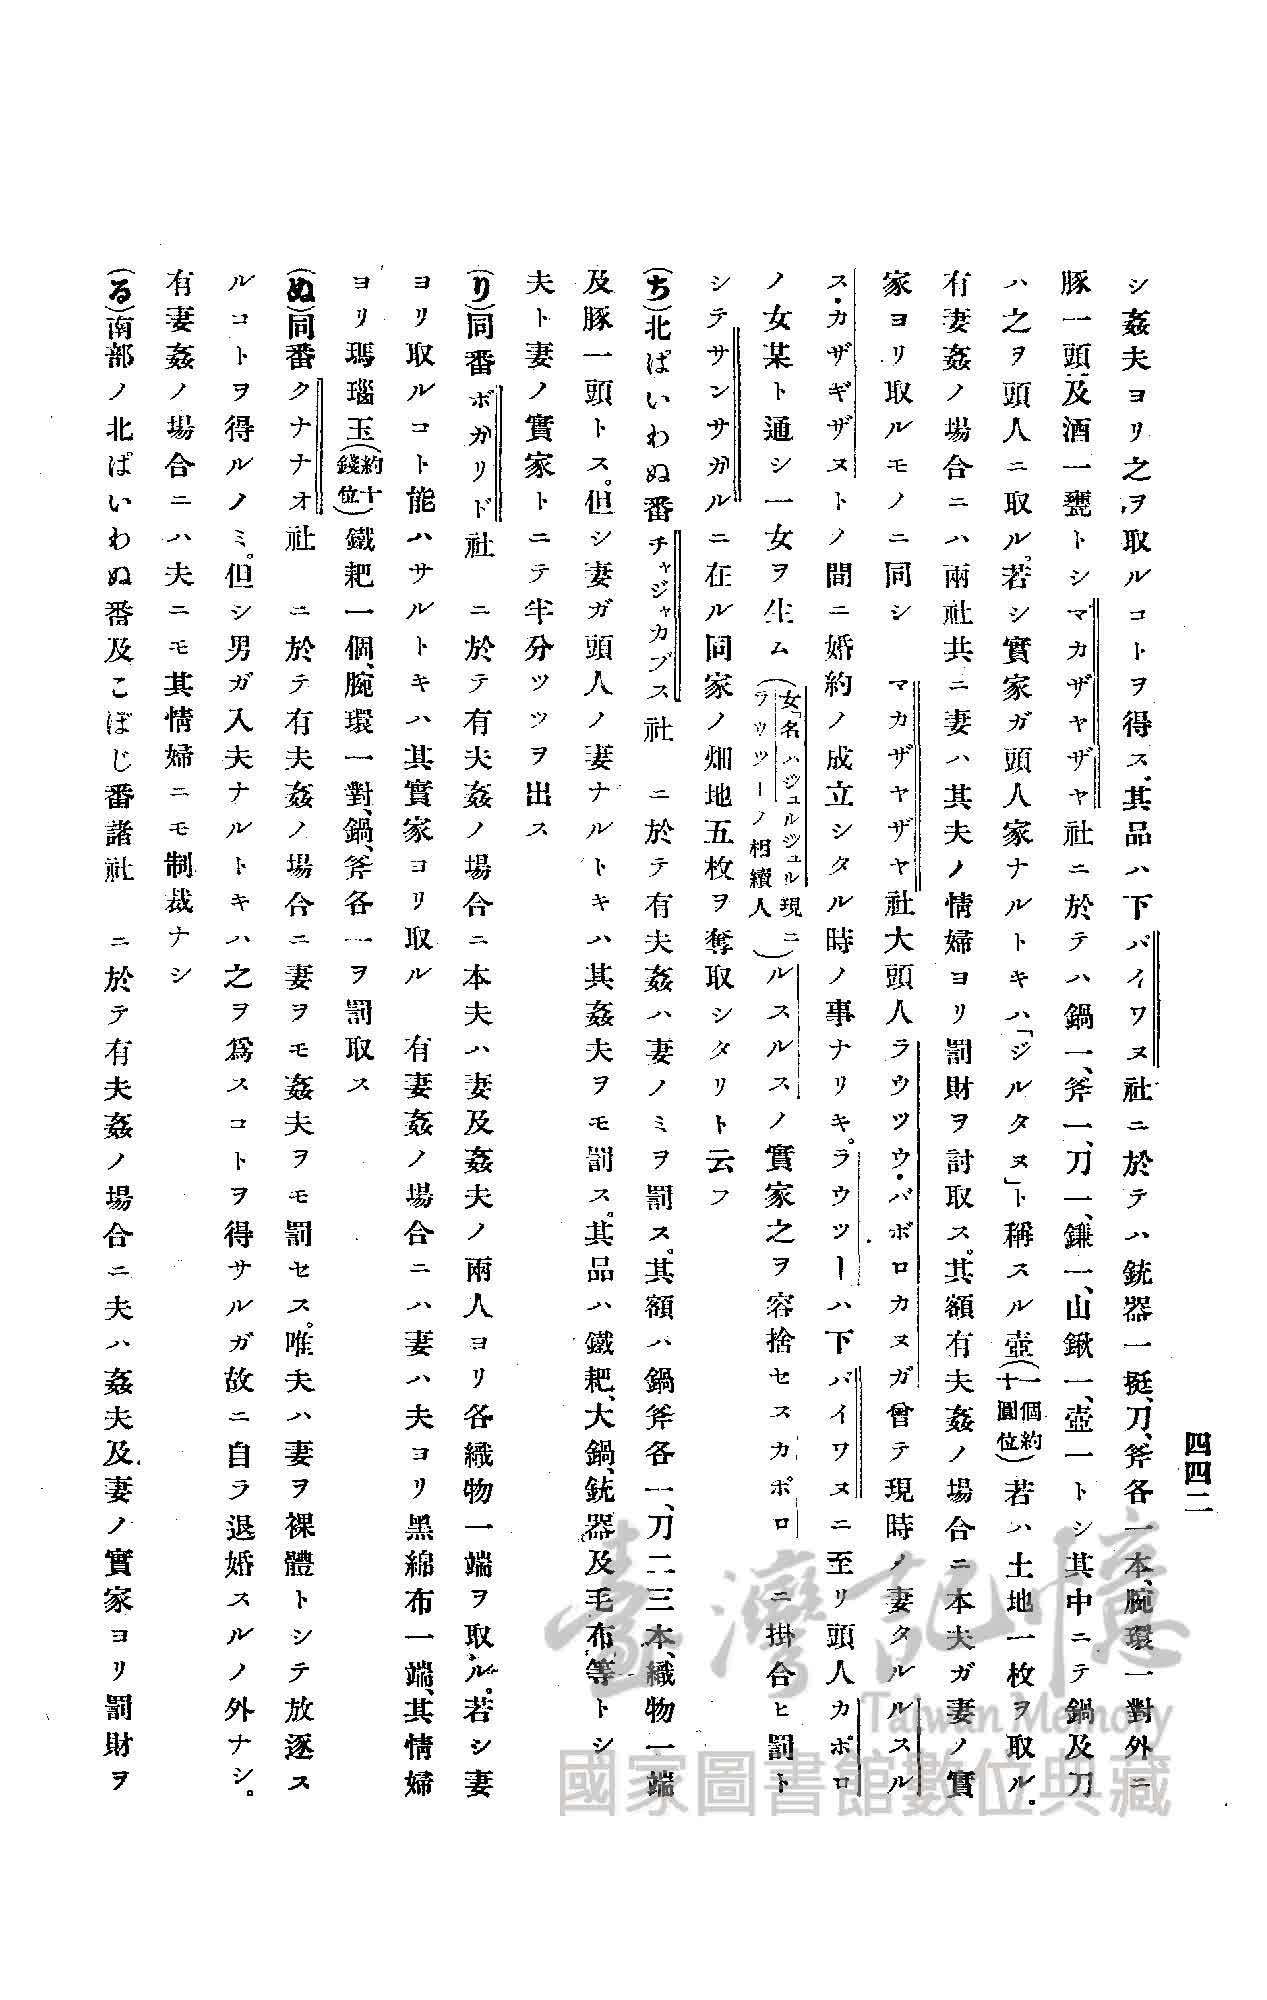 四四二
シ姦夫ヨリ之ヲ取ルコトヲ得ス、其品ハ下バイワヌ社ニ於テハ銃器一挺、刀、斧各一本、腕環一對外ニ
豚一頭及酒一甕トシマカザヤザヤ社ニ於テハ鍋一、斧一、刀一、鎌一、山鍬一、壺一トシ其中ニテ鍋及刀
ハ之ヲ頭人ニ取ル。若シ實家ガ頭人家ナルトキハ「ジルタヌ」ト稱スル壺(一個約十圓位)若ハ土地一枚ヲ取ル。
有妻姦ノ場合ニハ兩社共ニ妻ハ其夫ノ情婦ヨリ罰財ヲ討取ス。其額有夫姦ノ場合ニ本夫ガ妻ノ實
家ヨリ取ルモノニ同シ マカザヤザヤ社大頭人ラウツウ・バボロカヌガ曾テ現時ノ妻タルルスル
ス・カザギザヌトノ間ニ婚約ノ成立シタル時ノ事ナリキ。ラウツーハ下バイワヌニ至リ頭人カボロ
ノ女某ト通シ一女ヲ生ム(女「名ハジュルジュル現ニラウツーノ相續人)ルスルスノ實家之ヲ容捨セスカボロ ニ掛合ヒ罰ト
シテサンサガルニ在ル同家ノ畑地五枚ヲ奪取シタリト云フ
(ち)北ぱいわぬ番チャジャカブス社 ニ於テ有夫姦ハ妻ノミヲ罰ス。其額ハ鍋斧各一、刀二三本、織物一端
及豚一頭トス。但シ妻ガ頭人ノ妻ナルトキハ其姦夫ヲモ罰ス。其品ハ鐵耙、大鍋、銃器及毛布等トシ
夫ト妻ノ實家トニテ半分ツツヲ出ス
(り)同番ボガリド社 ニ於テ有夫姦ノ場合ニ本夫ハ妻及姦夫ノ兩人ヨリ各織物一端ヲ取ル。若シ妻
ヨリ取ルコト能ハサルトキハ其實家ヨリ取ル 有妻姦ノ場合ニハ妻ハ夫ヨリ黑綿布一端、其情婦
ヨリ瑪瑙玉(約十錢位)鐵耙一個、腕環一對、鍋、斧各一ヲ罰取ス
(ぬ)同番クナナオ社 ニ於テ有夫姦ノ場合ニ妻ヲモ姦夫ヲモ罰セス。唯夫ハ妻ヲ裸體トシテ放逐ス
ルコトヲ得ルノミ。但シ男ガ入夫ナルトキハ之ヲ爲スコトヲ得サルガ故ニ自ラ退婚スルノ外ナシ。
有妻姦ノ場合ニハ夫ニモ其情婦ニモ制裁ナシ
(る)南部ノ北ぱいわぬ番及こぼじ番諸社 ニ於テ有夫姦ノ場合ニ夫ハ姦夫及妻ノ實家ヨリ罰財ヲ
臺灣記憶
Taiwan Memory
國家圖書館數位典藏